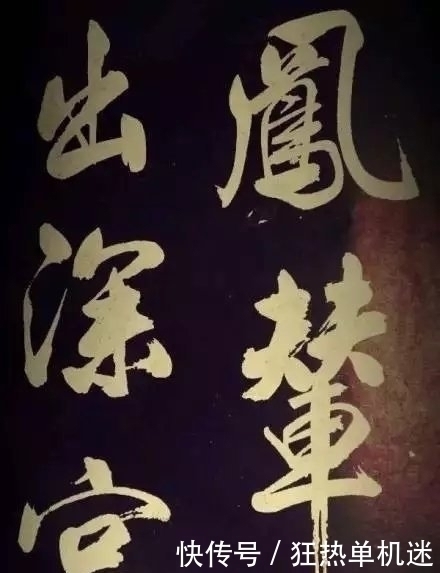 鳳輦
出深宮
快传号 / 狂热单机迷